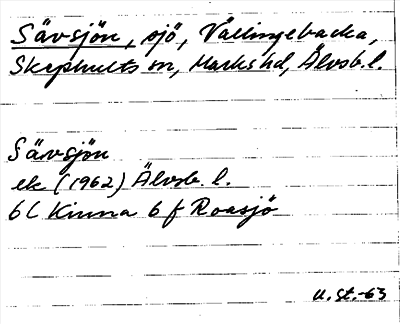 Sävsjön, sjö, Vällingebacka,
Skephults sn, Marks hd, Älvsb. l.
Sävsjön
ek (1962) Älvsb. l.
6c Kinna 6 f Roasjö
u.st.-63